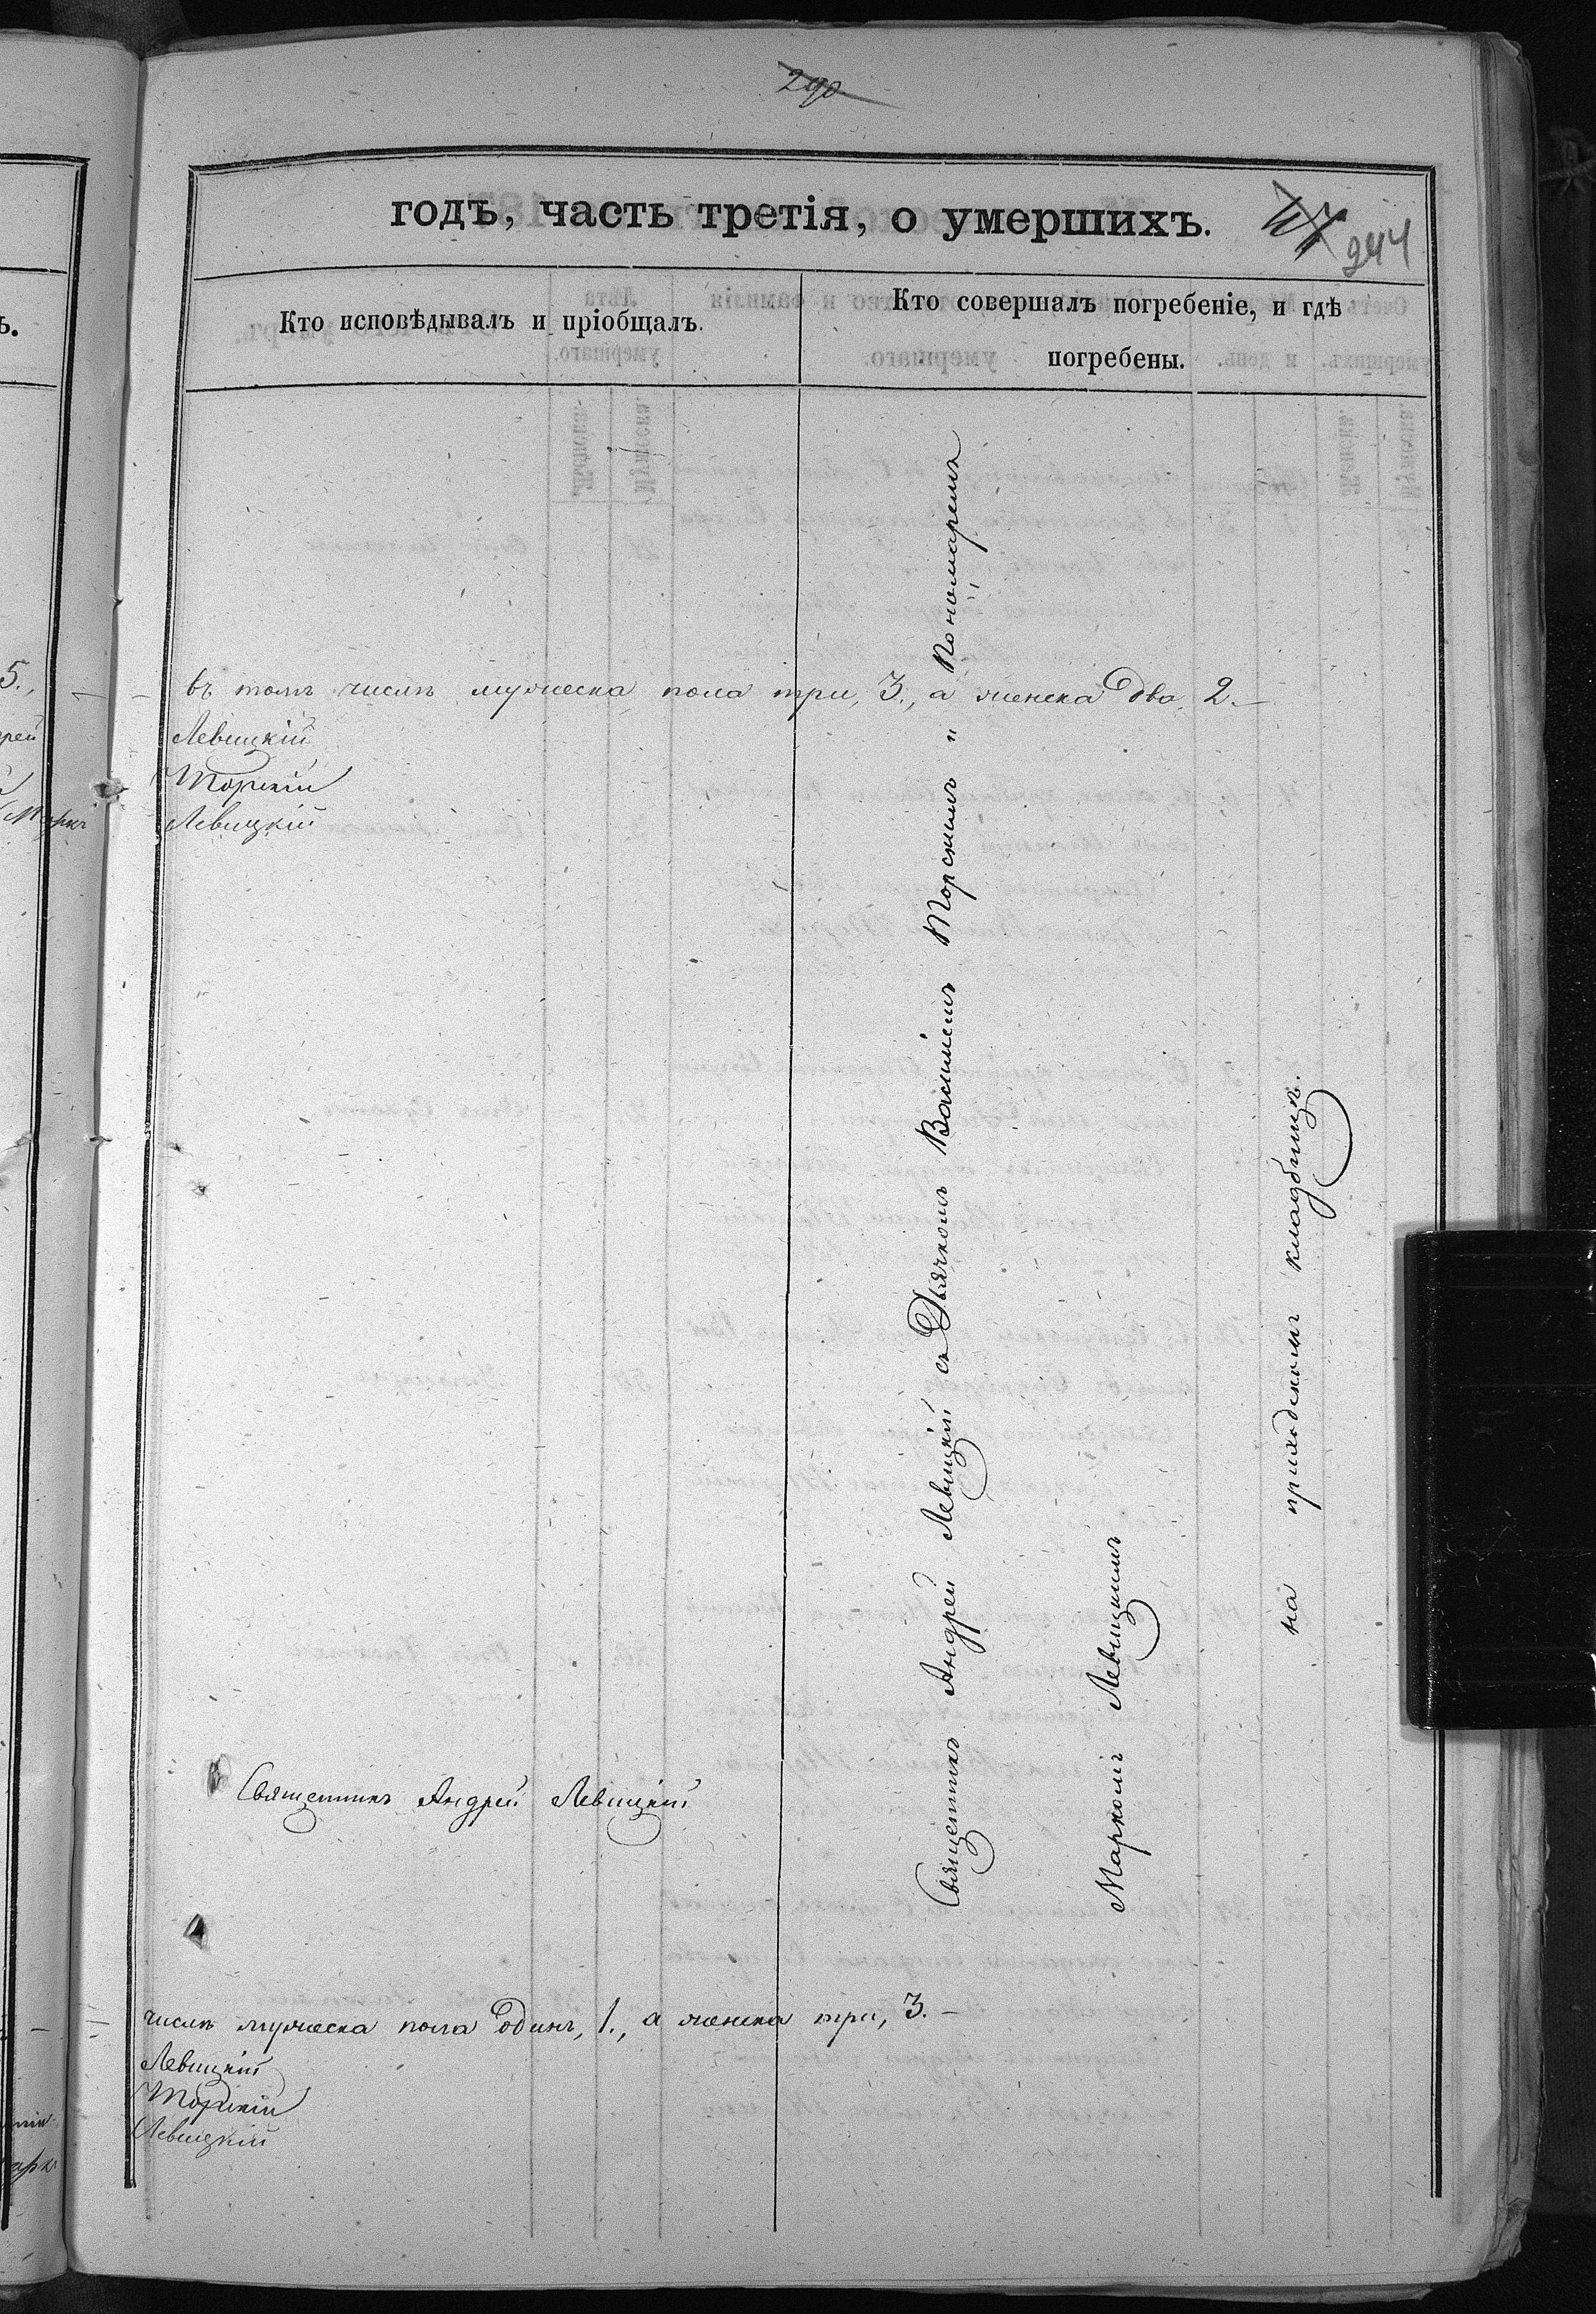 290
годъ, часть третія, о умершихъ.
47
244
Кто исповѣдывалъ и пріобщалъ.
Кто совершалъ погребеніе, и гдѣ
погребены.
въ томъ числѣ мужеска пола три, 3., а женска два, 2.—
Левицкій
Торскій
Левицкій
Священникъ Андрей Левицкій съ Дьячкомъ Василіемъ Торскимъ и Пономаремъ
Маркомъ Левицкимъ
на приходскомъ кладбищѣ.
Священникъ Андрей Левицкій
числѣ мужеска пола одинъ, 1., а женска три, 3.—
Левицкій
Торскій
Левицкій